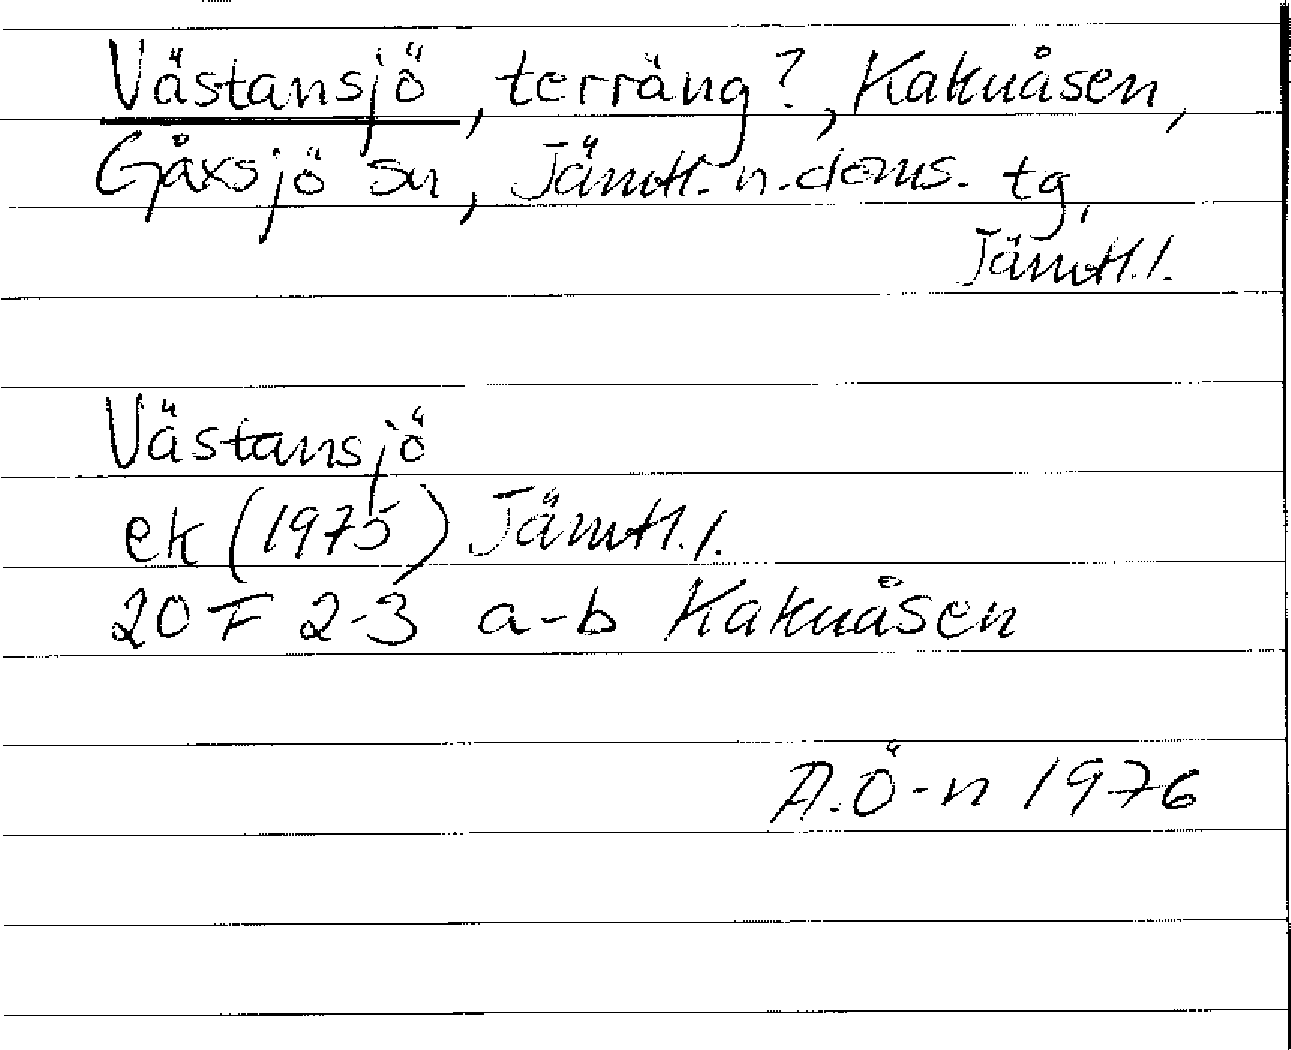 Västansjö, terräng?, Kakuåsen,
Gåxsjö sn, Jämtl. n. doms. tg,
Jämtl. l.
Västansjö
ek (1975) Jämtl. l.
20 F 2-3 a-b Kakuåsen
A.Ö-n 1976